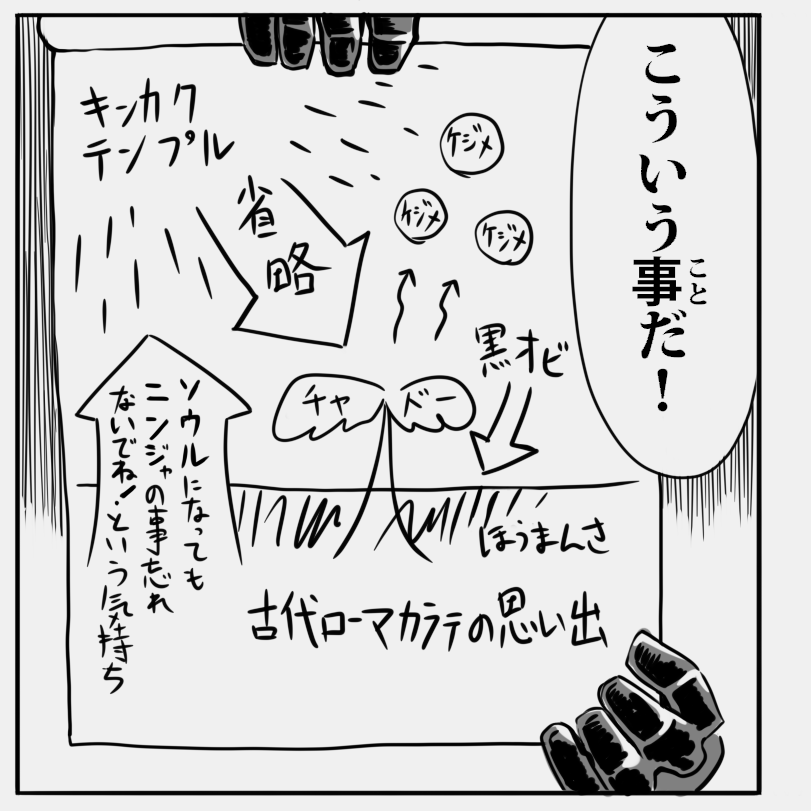 こういう事だ!
こと
キンカク
テンプル
ケジメ
ケジメ
ケジメ
省
略
黒オビ
チャドー
ソウルになっても
ニンジャの事忘れ
ないでね!という気持ち
ほうまんさ
古代ローマカラテの思い出